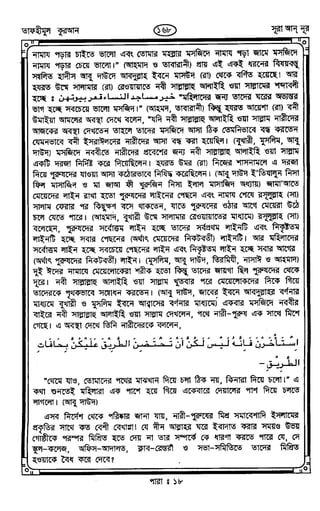 তাফহীমুল কুরআন
১৬৮
সূরা আন্ নূর
নামায পড়ার চাইতে ভালো এবং তোমার মহল্লার মসজিদে নামায পড়া জামে মসজিদে
নামায পড়ার চেয়ে ভালো।" (আহমাদ ও তাবারানী) প্রায় এই একই ধরনের বিষয়বস্তু
সম্বলিত হাদীস আবু দাউদে আবদুল্লাহ ইবনে মাসউদ (রা) থেকে বর্ণিত হয়েছে। আর
হযরত উম্মে সালামার (রা) রেওয়ায়াতে নবী সাল্লাল্লাহু আলাইহি ওয়া সাল্লামের শব্দাবলী
হচ্ছে : خير مساجد النساء قعر بيوتهن "মহিলাদের জন্য তাদের ঘরের অভ্যন্তর
ভাগ হচ্ছে সবচেয়ে ভালো মসজিদ।" (আহমদ, তাবারানী) কিন্তু হযরত আয়েশা (রা) বনী
উমাইয়া আমলের অবস্থা দেখে বলেন, "যদি নবী সাল্লাল্লাহু আলাইহি ওয়া সাল্লাম নারীদের
আজকের অবস্থা দেখতেন তাহলে তাদের মসজিদে আসা ঠিক তেমনিভাবে বন্ধ করতেন
যেমনভাবে বনী ইসরাঈলদের নারীদের আসা বন্ধ করা হয়েছিল। (বুখারী, মুসলিম, আবু
দাউদ) মসজিদে নববীতে নারীদের প্রবেশের জন্য নবী সাল্লাল্লাহু আলাইহি ওয়া সাল্লাম
একটি দরজা নির্দিষ্ট করে দিয়েছিলেন। হযরত উমর (রা) নিজের শাসনামলে এ দরজা
দিয়ে পুরুষদের যাওয়া আসা কঠোরভাবে নিষিদ্ধ করেছিলেন। (আবু দাউদ ই'তিযালুন নিসা
ফিল মাসাজিদ ও মা জাআ ফী খুরূজিন নিসা ইলাল মাসাজিদ অধ্যায়) জামা'আতে
মেয়েদের লাইন রাখা হতো পুরুষদের লাইনের পেছনে এবং নামায শেষে রসূলুল্লাহ (সা)
সালাম ফেরার পর কিছুক্ষণ বসে থাকতেন, যাতে পুরুষদের ওঠার আগে মেয়েরা উঠে
চলে যেতে পারে। (আহমাদ, বুখারী উম্মে সালামার রেওয়ায়াতের মাধ্যমে) রসূলুল্লাহ (সা)
বলেছেন, পুরুষদের সর্বোত্তম লাইন হচ্ছে তাদের সর্বপ্রথম লাইনটি এবং নিকৃষ্টতম
লাইনটি হচ্ছে সবার পেছনের (অর্থাৎ মেয়েদের নিকটবর্তী) লাইনটি। আর মহিলাদের
সর্বোত্তম লাইন হচ্ছে সবচেয়ে পেছনের লাইন এবং নিকৃষ্টতম লাইন হচ্ছে সবার আগের
(অর্থাৎ পুরুষদের নিকটবর্তী) লাইন। (মুসলিম, আবু দাউদ, তিরমিযী, নাসাঈ ও আহমাদ)
দুই ঈদের নামাযে মেয়েলোকেরা শরীক হতো কিন্তু তাদের জায়গা ছিল পুরুষদের থেকে
দূরে। নবী সাল্লাল্লাহু আলাইহি ওয়া সাল্লাম খুতবার পরে মেয়েলোকদের দিকে গিয়ে
তাদেরকে পৃথকভাবে সম্বোধন করতেন। (আবু দাউদ, জাবের ইবনে আবদুল্লাহর বর্ণনার
মাধ্যমে বুখারী ও মুসলিম ইবনে আব্বাসের বর্ণনার মাধ্যমে) একবার মসজিদে নববীর
বাইরে নবী সাল্লাল্লাহু আলাইহি ওয়া সাল্লাম দেখলেন, পথে নারী-পুরুষ এক সাথে মিশে
গেছে। এ অবস্থা দেখে তিনি নারীদেরকে বললেন,
استأخرن فانه ليس لكن ان تحتضنن الطريق عليكن بحافات
الطريق -
"থেমে যাও, তোমাদের পথের মাঝখান দিয়ে চলা ঠিক নয়, কিনারা দিয়ে চলো।" এ
কথা শুনতেই মহিলারা এক পাশে হয়ে গিয়ে একেবারে দেয়ালের পাশ দিয়ে চলতে
লাগলো। (আবু দাউদ)
এসব নির্দেশ থেকে পরিষ্কার জানা যায়, নারী-পুরুষের মিশ্র সমাবেশাদি ইসলামের
প্রকৃতির সাথে কত বেশী বেখাপ্পা। যে দীন আল্লাহর ঘরে ইবাদাত করার সময়ও উভয়
গোষ্ঠীকে পরস্পর মিশ্রিত হতে দেয় না তার সম্পর্কে কে ধারণা করতে পারে যে, সে
স্কুল-কলেজ, অফিস-আদালত, ক্লাব-রেস্তরাঁ ও সভা-সমিতিতে তাদের মিশ্রিত
হওয়াকে বৈধ করে দেবে?
পারা : ১৮